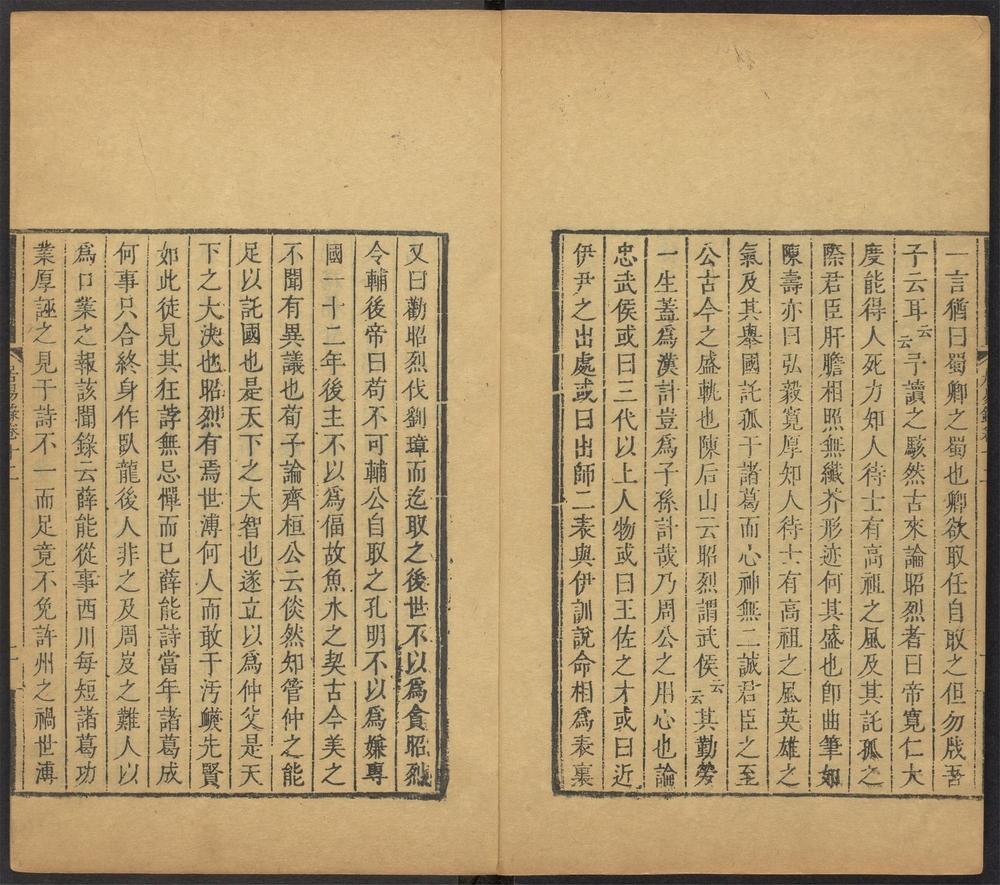 一言猶曰蜀卿之蜀也卿欲取任自取之但勿戕吾
子云耳云云予讀之駭然古來論昭烈者曰帝寬仁大
度能得人死力方知人待士有高祖之風及其託孤之
際君臣肝膽相照無纎芥形迹何其盛也卽曲筆如
陳壽亦曰弘毅寬厚知人待士有高祖之風英雄之
氣及其舉國託孤于諸葛而心神無二誠君臣之至
公古今之盛軌也陳后山云昭烈謂武侯云云其勤勞
一生蓋爲漢計豈爲子孫計哉乃周公之用心也論
忠武侯或曰三代以上人物或曰王佐之才或曰近
伊尹之出處或曰出師二表與伊訓說命相爲表裏
居易錄卷十二
又曰勸昭烈伐劉璋而迄取之後世不以爲貪昭烈
令輔後帝曰苟不可輔公自取之孔明不以爲嫌專
國一十二年後主不以爲偪故魚水之契古今美之
不聞有異議也荀子論齊桓公云倓然知管仲之能
足以託國也是天下之大智也遂立以爲仲父是天
下之大決也昭烈有焉世溥何人而敢于汚衊先賢
如此徒見其狂誖無忌憚而已薛能詩當年諸葛成
何事只合終身作臥龍後人非之及周岌之難人以
爲口業之報該聞錄云薛能從事西川每短諸葛功
業厚誣之見于詩不一而足竟不免許州之禍世溥